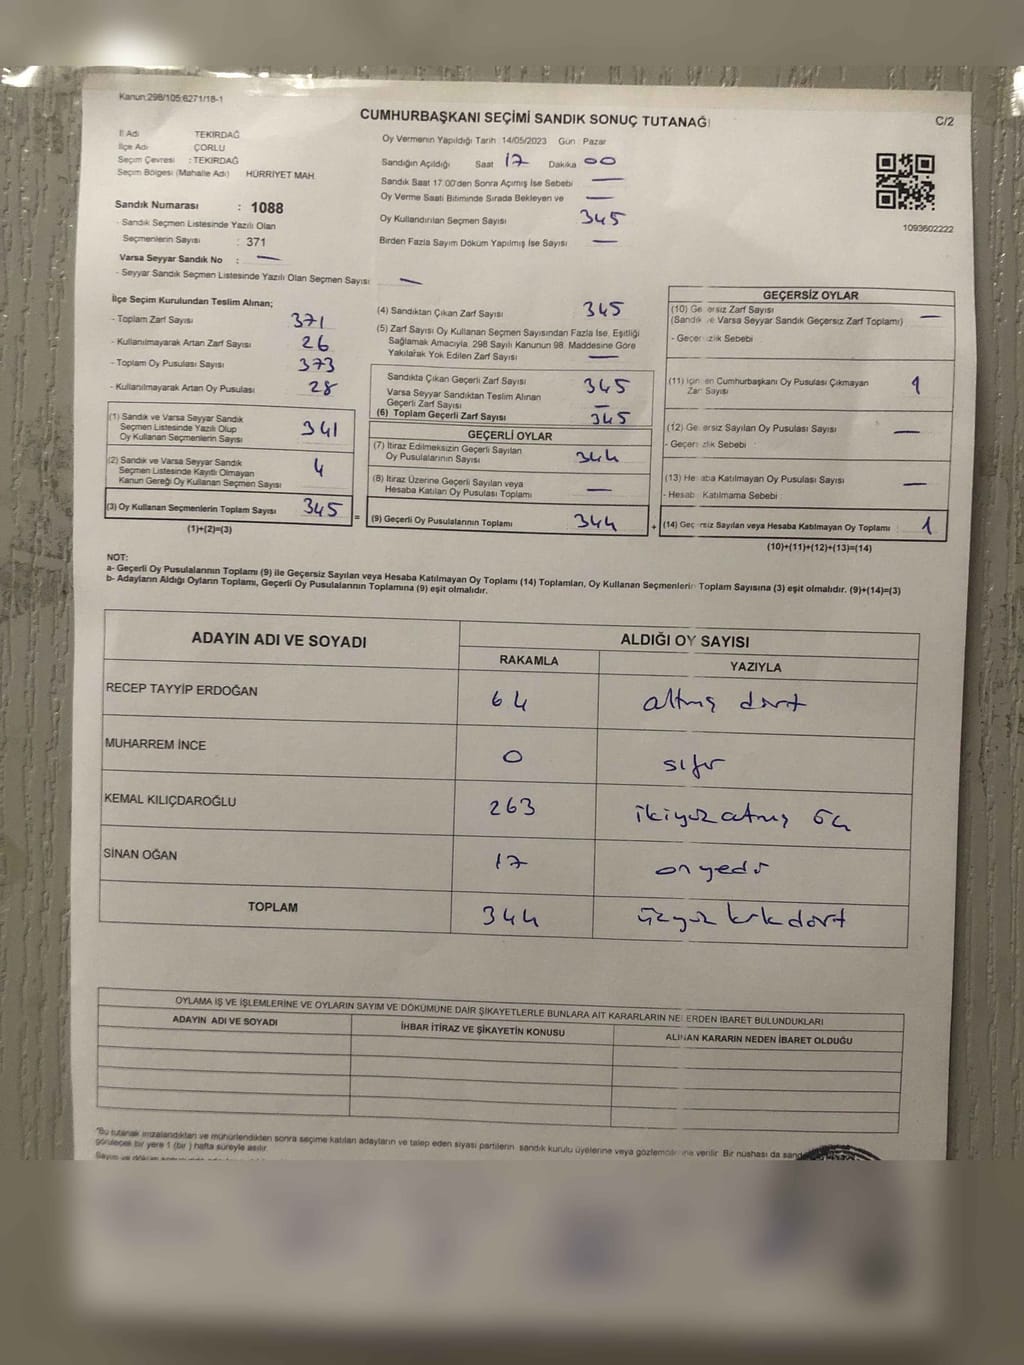 Kanun:298/105;6271/18-1
CUMHURBAŞKANI SEÇİMİ SANDIK SONUÇ TUTANAĞI
C/2
İl Adı TEKİRDAĞ
İlçe Adı ÇORLU
Seçim Çevresi : TEKİRDAĞ
Seçim Bölgesi (Mahalle Adı) HÜRRİYET MAH.
Oy Vermenin Yapıldığı Tarih 14/05/2023 Gün Pazar
Sandığın Açıldığı Saat 17 Dakika 00
Sandık Saat 17:00'den Sonra Açımış İse Sebebi —
Oy Verme Saati Bitiminde Sırada Bekleyen ve —
Oy Kullandırılan Seçmen Sayısı 345
Birden Fazla Sayım Döküm Yapılmış İse Sayısı —
1093602222
Sandık Numarası : 1088
- Sandık Seçmen Listesinde Yazılı Olan
Seçmenlerin Sayısı : 371
Varsa Seyyar Sandık No : —
- Seyyar Sandık Seçmen Listesinde Yazılı Olan Seçmen Sayısı —
İlçe Seçim Kurulundan Teslim Alınan;
- Toplam Zarf Sayısı 371
- Kullanılmayarak Artan Zarf Sayısı 26
- Toplam Oy Pusulası Sayısı 373
- Kullanılmayarak Artan Oy Pusulası 28
(1) Sandık ve Varsa Seyyar Sandık
Seçmen Listesinde Yazılı Olup
Oy Kullanan Seçmenlerin Sayısı 341
(2) Sandık ve Varsa Seyyar Sandık
Seçmen Listesinde Kayıtlı Olmayan
Kanun Gereği Oy Kullanan Seçmen Sayısı 4
(3) Oy Kullanan Seçmenlerin Toplam Sayısı 345
(1)+(2)=(3)
(4) Sandıktan Çıkan Zarf Sayısı 345
(5) Zarf Sayısı Oy Kullanan Seçmen Sayısından Fazla İse, Eşitliği
Sağlamak Amacıyla, 298 Sayılı Kanunun 98. Maddesine Göre
Yakılarak Yok Edilen Zarf Sayısı —
Sandıkta Çıkan Geçerli Zarf Sayısı 345
Varsa Seyyar Sandıktan Teslim Alınan
Geçerli Zarf Sayısı —
(6) Toplam Geçerli Zarf Sayısı 345
GEÇERLİ OYLAR
(7) İtiraz Edilmeksizin Geçerli Sayılan
Oy Pusulalarının Sayısı 344
(8) İtiraz Üzerine Geçerli Sayılan veya
Hesaba Katılan Oy Pusulası Toplamı —
= (9) Geçerli Oy Pusulalarının Toplamı 344 +
GEÇERSİZ OYLAR
(10) Geçersiz Zarf Sayısı
(Sandık ve Varsa Seyyar Sandık Geçersiz Zarf Toplamı) —
- Geçersizlik Sebebi
(11) İçinden Cumhurbaşkanı Oy Pusulası Çıkmayan
Zarf Sayısı 1
(12) Geçersiz Sayılan Oy Pusulası Sayısı —
- Geçersizlik Sebebi :
(13) Hesaba Katılmayan Oy Pusulası Sayısı —
- Hesaba Katılmama Sebebi
(14) Geçersiz Sayılan veya Hesaba Katılmayan Oy Toplamı : 1
(10)+(11)+(12)+(13)=(14)
NOT:
a- Geçerli Oy Pusulalarının Toplamı (9) ile Geçersiz Sayılan veya Hesaba Katılmayan Oy Toplamı (14) Toplamları, Oy Kullanan Seçmenlerin Toplam Sayısına (3) eşit olmalıdır. (9)+(14)=(3)
b- Adayların Aldığı Oyların Toplamı, Geçerli Oy Pusulalarının Toplamına (9) eşit olmalıdır.
ADAYIN ADI VE SOYADI ALDIĞI OY SAYISI
RAKAMLA YAZIYLA
RECEP TAYYİP ERDOĞAN 64 altmış dört
MUHARREM İNCE 0 sıfır
KEMAL KILIÇDAROĞLU 263 ikiyüz atmış
SİNAN OĞAN 17 on yedi
TOPLAM 344 üçyüz kırk dört
OYLAMA İŞ VE İŞLEMLERİNE VE OYLARIN SAYIM VE DÖKÜMÜNE DAİR ŞİKAYETLERLE BUNLARA AİT KARARLARIN NELERDEN İBARET BULUNDUKLARI
ADAYIN ADI VE SOYADI İHBAR İTİRAZ VE ŞİKAYETİN KONUSU ALINAN KARARIN NEDEN İBARET OLDUĞU
*Bu tutanak imzalandıktan ve mühürlendikten sonra seçime katılan adayların ve talep eden siyasi partilerin sandık kurulu üyelerine veya gözlemcilerine verilir. Bir nüshası da
görülecek bir yere 1 (bir ) hafta süreyle asılır.